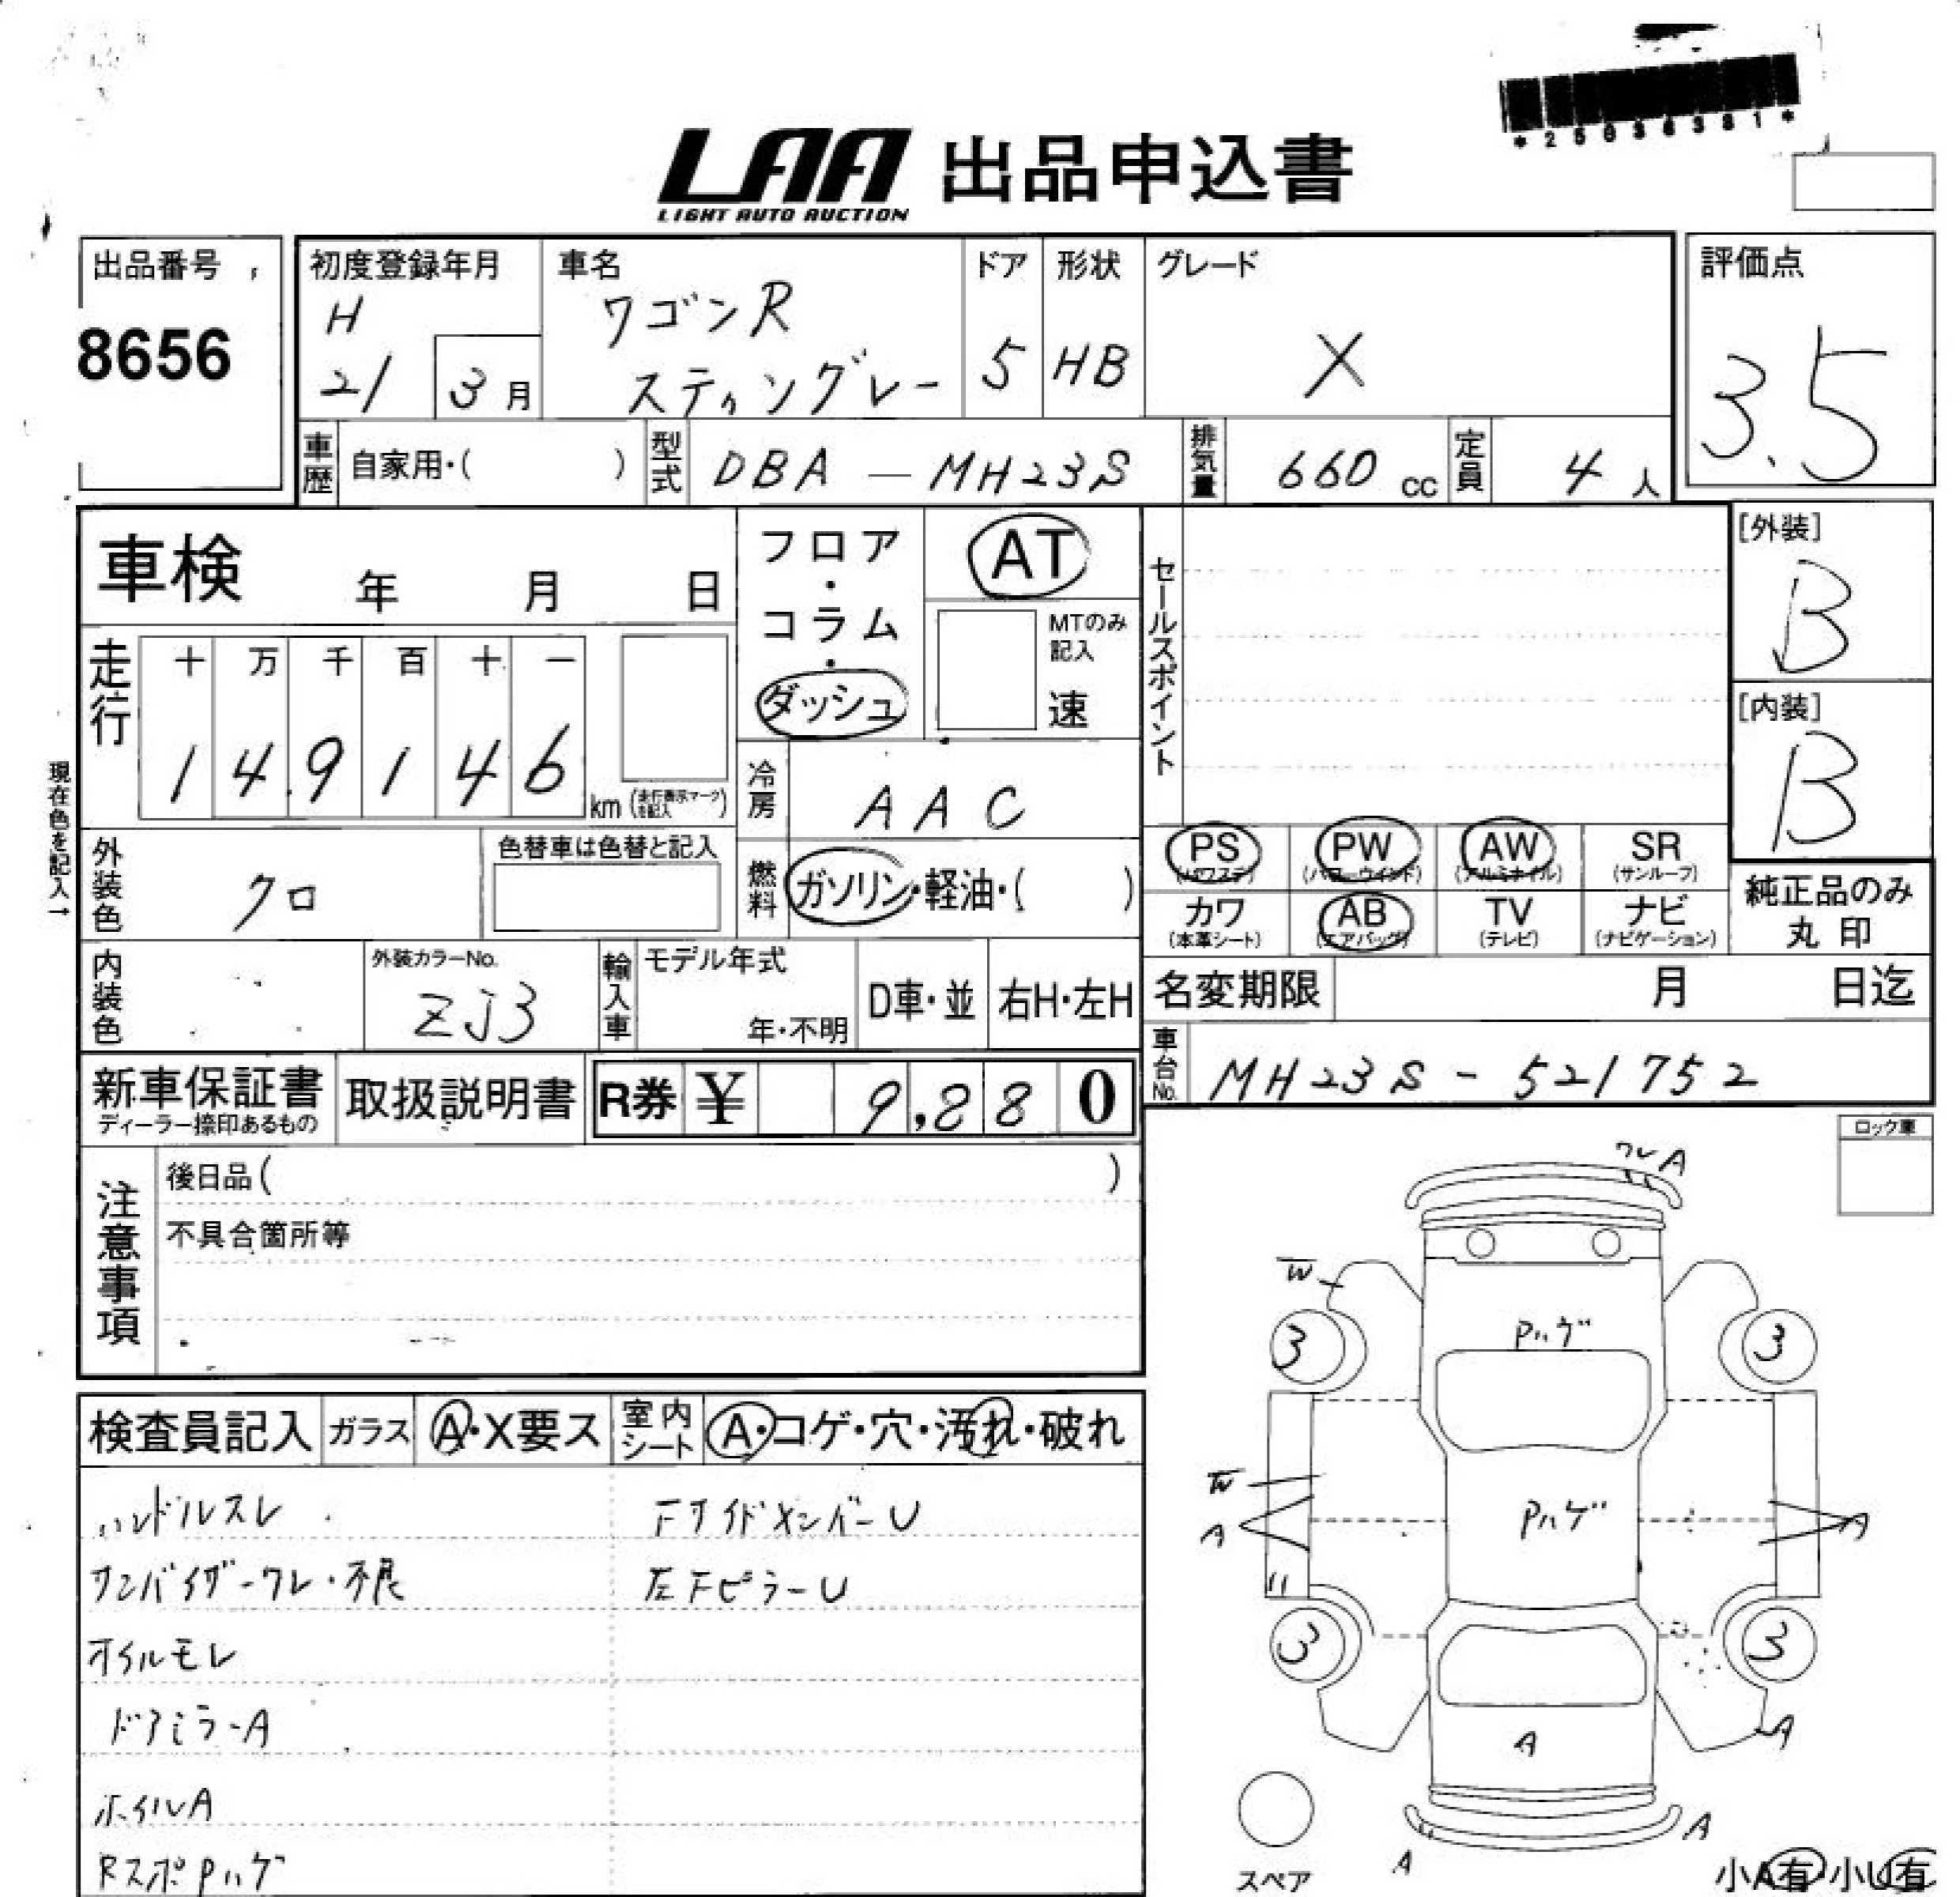 *25036381*
LAA 出品申込書
LIGHT AUTO AUCTION
出品番号
8656
初度登録年月
H
21 3月
車名
ワゴンR
スティングレー
ドア
5
形状
HB
グレード
X
評価点
3.5
車歴 自家用・( )
型式 DBA-MH23S
排気量 660 cc
定員 4人
車検 年 月 日
フロア
・
コラム
・
ダッシュ
AT
MTのみ
記入
速
セールスポイント
[外装]
B
[内装]
B
走行
十 万 千 百 十 一
1 4 9 1 4 6
km (走行表示マークを記入)
現在色を記入→
冷房 AAC
外装色 クロ
色替車は色替と記入
燃料 ガソリン・軽油・( )
PS (パワステ)
PW (パワーウインド)
AW (アルミホイル)
SR (サンルーフ)
カワ (本革シート)
AB (エアバッグ)
TV (テレビ)
ナビ (ナビゲーション)
純正品のみ
丸印
内装色
外装カラーNo.
ZJ3
輸入車
モデル年式
年・不明
D車・並
右H・左H
名変期限 月 日迄
車台No. MH23S-521752
新車保証書
ディーラー捺印あるもの
取扱説明書
R券 ¥ 9,880
ロック車
注意事項
後日品( )
不具合箇所等
検査員記入
ガラス A・X要ス
室内シート A・コゲ・穴・汚れ・破れ
ハンドルスレ
サンバイザーワレ・不良
オイルモレ
ドアミラーA
ホイルA
RスポPハゲ
FサイドメンバーU
左FピラーU
ワレA
W
Pハゲ
3
3
W
A
Pハゲ
A
3
3
A
A
A
A
スペア
小A有 小U有